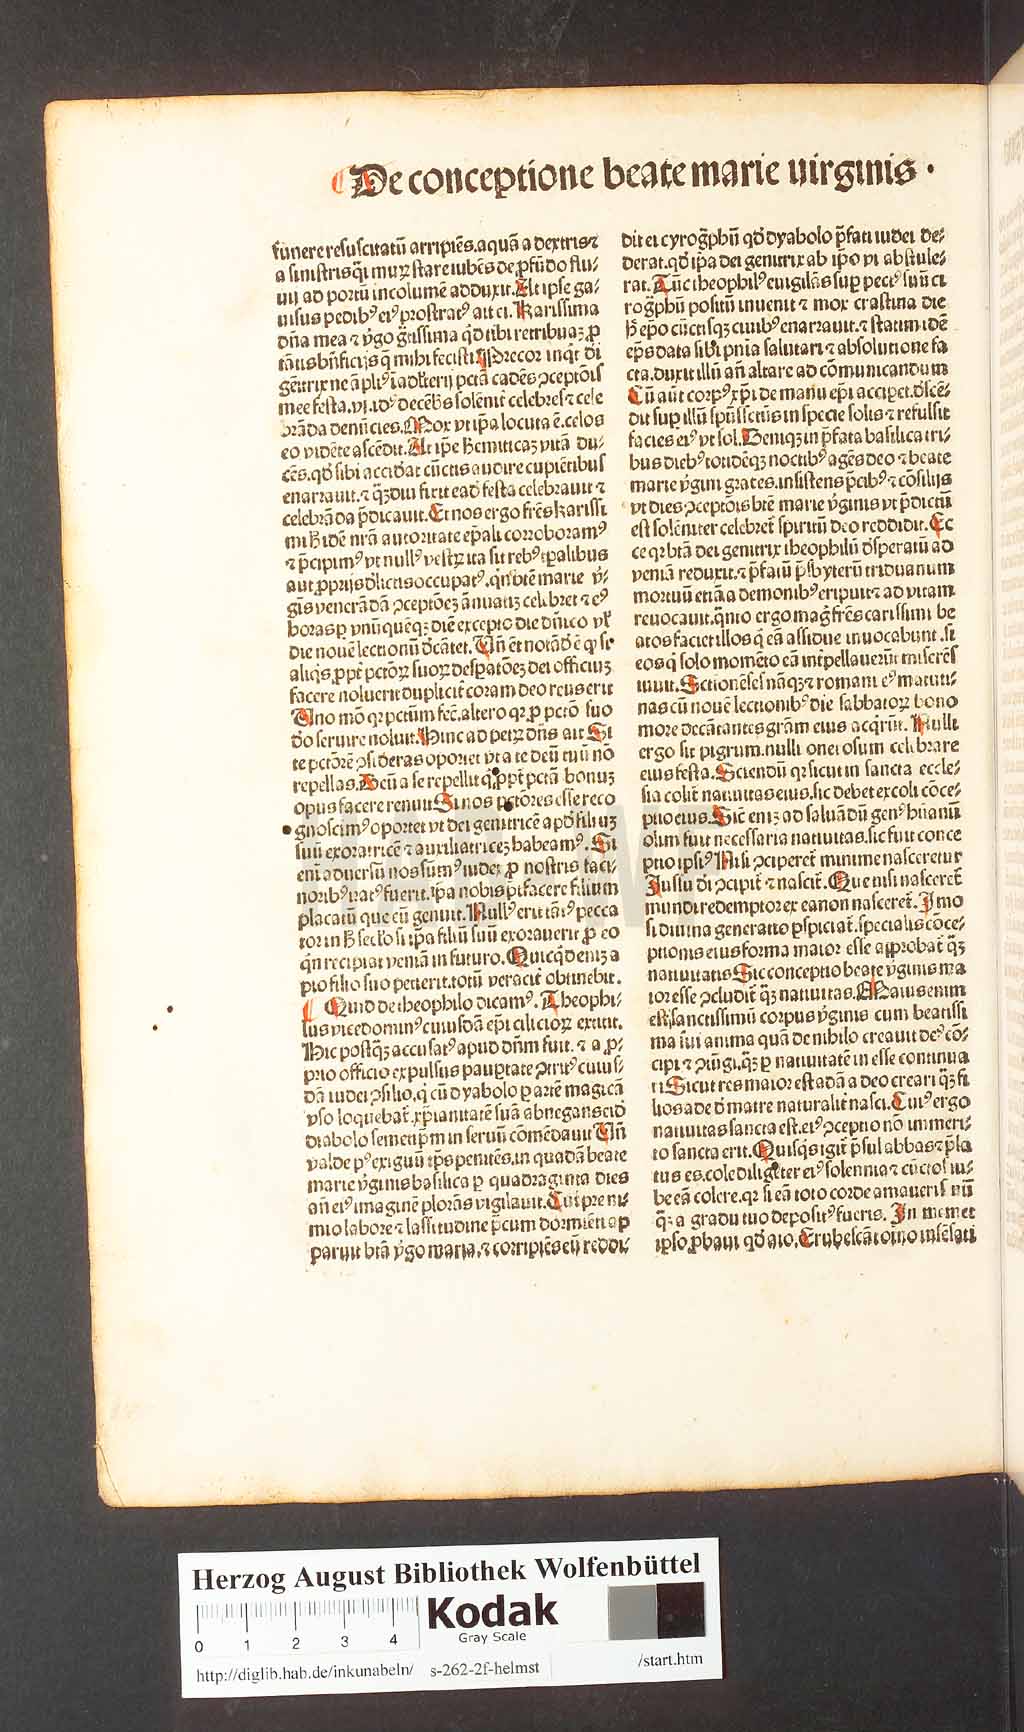 De conceptione beate marie uirginis .
funere resuscitatū arripiēs.aquā a dextris ⁊
a sinistris q̄si muꝝ stare iubēs de ꝓfūdo flu-
uij ad portū incolumē adduxit.At ipse ga-
uisus pedibꝰ eiꝰ prostratꝰ ait ei.Karissima
dn̄a mea ⁊ v̄go gr̄tissima qͥd tibi retribuaꝫ ꝓ
tātis bn̄ficijs q̄ mihi fecisti
gēitrix ne ā pliꝰ ī adl'terij pctā cadēs ꝯceptōis
mee festa.vi.idꝰ decēbꝭs solēnit̄ celebres ⁊ cele
brāda denūcies.Mox vt ip̄a locuta ē.celos
eo vidēte ascēdit.At ip̄e h̄emiticaꝫ vitā du-
cēs.qd̓ sibi acciderat cūctis audire cupiētibus
enarrauit.⁊ q̄ꝫdiu fuit eadē festa celebrauit ⁊
celebrāda p̄dicauit.Et nos ergo frēs karissi
mi h̄ idē nr̄a autoritate ep̄ali corroboramꝰ
⁊ p̄cipimꝰ vt nullꝰ vestꝝ ita sit rebꝰ tꝑalibus
aut ꝓprijs d̓lictis occupatꝰ.qͥn btē marie v̄-
gīs venerādā ꝯceptōeꝫ ānuatiꝫ celebret ⁊ eꝰ
horas ꝑ vnū quēqꝫ diē excepto die dn̄ico vꝉ
die nouē lectionū d̓cātet.Vn̄ ēt notād̓ ē ꝙ si
aliqͥs ꝓpt̄ pctōꝝ suoꝝ desꝑatōeꝫ dei officiuꝫ
facere noluerit duplicit̄ coram deo reus erit
Uno mō qꝛ pctūm fec̄.altero qꝛ ꝓ pctō suo
d̓o seruire noluit.Hinc ad petꝝ dn̄s ait Si
te pctōrē ꝯsideras oportet vt a te deū tuū nō
repellas.Ad cū a se repellit qͥ ꝓpt̄ pctā bonuꝫ
opus facere renuit Si nos pctōres esse reco
gnoscimꝰ oportet vt dei genitricē apd̓ filiuꝫ
suū exoratricē ⁊ auxiliatriceꝫ habeamꝰ.Si
eni aduersū nos sumꝰ iudex ꝓ nostris faci-
noribꝰ iratꝰ fuerit.ip̄a nobis pōt facere filium
placatū que eū genuit.Nullꝰ erit tātꝰ pecca
tor in h̄ sectō si ip̄a filiū suū exorauerit ꝓ eo
qͥn recipiat veniā in futuro.Quicqͥd eniꝫ a
pio filio suo petierit.totū veracit̄ obtinebit.
Quid de theophilo dicamꝰ.Theophi-
lus vicedominꝰ cuiusdā ep̄i cilicioꝝ extitit.
Hic postq̄ꝫ accusatꝰ apud dn̄m fuit.⁊ a ꝓ-
prio officio expulsus pauꝑtate ꝯtritꝰ cuius-
dā iudei ꝯsilio.qͥ cū dyabolo ꝑ artē magicā
vso loquebat̄.xp̄ianitatē suā abnegans eid̓
diabolo semetip̄m in seruū cōmēdauit Vn̄
valde pꝰ exiguū tp̄s penitēs.in quadā beate
marie v̄ginis basilica ꝑ quadraginta dies
an̄ eiꝰ imaginē plorās vigilauit.Cui pre ni
mio labore ⁊ lassitudine p̄cum dormiēti ap
paruit btā v̄go maria.⁊ corripiēs eū reddi-
dit ei cyrogꝑhū qd̓ dyabolo p̄fati iudei de-
derat.qd̓ ip̄a dei genitrix ab ip̄o vi abstule-
rat.Tūc theophilꝰ euigilās suꝑ pectꝰ suū ci
rogꝑhū positū inuenit ⁊ mox crastina die
h̄ ep̄o cūctisqꝫ ciuibꝰ enarrauit.⁊ statim idē
ep̄s data sibi pn̄ia salutari ⁊ absolutione fa
cta.duxit illū an̄ altare ad cōmunicandum
Cū aūt corpꝰ xp̄i de manu ep̄i accipet.d̓scē-
dit suꝑ illū sp̄ūssctūs in specie solis ⁊ refulsit
facies eiꝰ vt sol.Deniqꝫ in p̄fata basilica tri-
bus diebꝰ totidēqꝫ noctibꝰ agēs deo ⁊ beate
marie v̄gini grates.insistens p̄cibꝰ ⁊ cōsilijs
vt dies ꝯceptōis btē marie v̄ginis vt p̄dictū
est solēniter celebret̄ spiritū deo reddidit.Ec
ce qꝛ btā dei genitrix theophilū d̓speratū ad
veniā reduxit.⁊ p̄fatū p̄sbyterū triduanum
mortuū etiā a demonibꝰ eripuit ⁊ ad vitam
reuocauit.qͣnto ergo mag̓ frēs carissimi be
atos faciet illos qͥ eā assidue inuocabunt.si
eos qͥ solo momēto eā int̄pellauerūt miserēs
iuuit.Sctionēses nāqꝫ ⁊ romani eꝰ matuti-
nas cū nouē lectionibꝰ die sabbatoꝝ bono
more decātantes grām eius acqͥrūt.Nulli
ergo sit pigrum.nulli onerosum celebrare
eius festa.Sciendū qꝛ sicut in sancta eccle-
sia colit̄ natiuitas eius.sic debet excoli cōce-
ptio eius.Sic eniꝫ ad saluādū genꝰ hūanū
olim fuit necessaria natiuitas.sic fuit conce
ptio ipsiꝰ.Nisi ꝯciperet̄ minime nasceretur
Jussu di ꝯcipit̄ ⁊ nascit̄.Que nisi nasceret̄
mundi redemptor ex ea non nasceret̄.Jmo
si diuina generatio ꝑspiciat̄.specialis cōce-
ptionis eius forma maior esse approbat̄ q̄ꝫ
natiuitatis Sic conceptio beate v̄ginis ma
ior esse ꝯcludit̄ q̄ꝫ natiuitas.Maius enim
est.sanctissimū corpus v̄ginis cum beatissi
ma sui anima quā de nihilo creauit deꝰ cō-
cipi ⁊ ꝯiūgi.q̄ꝫ ꝑ natiuitatē in esse continua
ri Sicut res maior est adā a deo creari q̄ꝫ fi
lios ade d̓ matre naturalit̄ nasci.Cuiꝰ ergo
natiuitas sancta est.eiꝰ ꝯceptio nō immeri-
to sancta erit.Quisqͥs igit̄ p̄sul abbas ⁊ p̄la
tus es.cole diligēter eiꝰ solennia ⁊ cūctos iu-
be eā colere.qꝛ si eā toto corde amaueris nū
q̄ꝫ a gradu tuo depositꝰ fueris.Jn memet
ipso ꝓbaui qd̓ aio.Erubescāt oīno insēsati
Herzog August Bibliothek Wolfenbüttel
0 1 2 3 4
Kodak
Gray Scale
http://diglib.hab.de/inkunabeln/ s-262-2f-helmst /start.htm